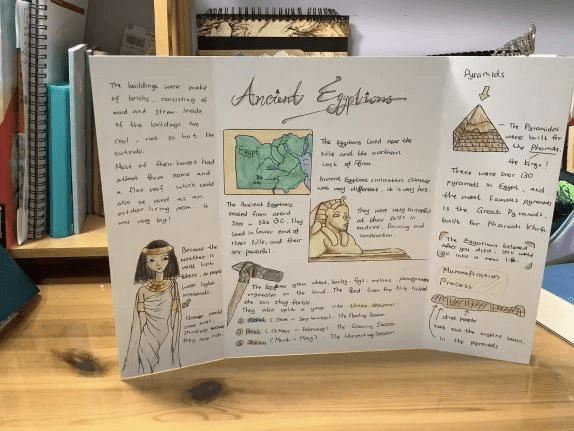 The buildings were make
of bricks, consisting of
mud and straw. Inside
of the buildings are
cool, not so hot like
outside.
Most of their houses had
atleast three rooms and
a flat roof which would
also be used as an
outdoor living room. It
was very big!
Because the
weather is
well hot
there, so people
wear light
materials.
Women could
wear
they are rich.
Ancient Egyptians
Egypt
The Egyptians lived near the
Nile and the northern
cost of Africa.
Ancient Egyptians civilisation climate
was very different, it is very hot.
The Ancient Egyptians
existed from around
3100 - 332 BC. They
lived in lower end of
river Nile, and their
are powerful.
They were very successful
at their skills in
medicine, farming and
construction.
The Egyptians grew wheat, barley, figs, melons, pomegranates
vegetables on the land. The flood from the Nile helped
the soil stay fertile.
They also split a year into three seasons:
① (June - September): The Flooding Season
② (October - February): The Growing Season
③ (March - May): The Harvesting Season
Pyramids
— The Pyramids
were built for
the pharaohs,
the kings!
There were over 130
pyramids in Egypt, and
the most famous pyramids
is the Great Pyramids,
built for Pharaoh Khufu
The Egyptians believed
after you died, you would
go into a new life.
Mummification
Process
dead people
took out the brain.
in the pyramids